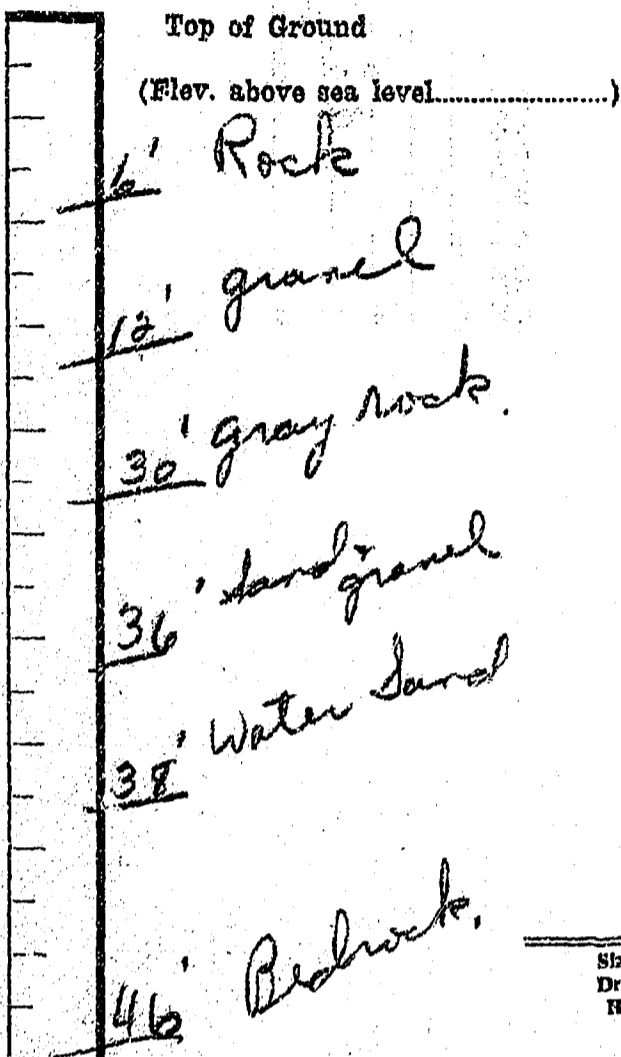 Top of Ground
(Elev. above sea level....................)
6' Rock
12' gravel
30' gray rock.
36' Sand &
gravel
38' Water Sand
46' Bedrock.
Siz
Dr
H